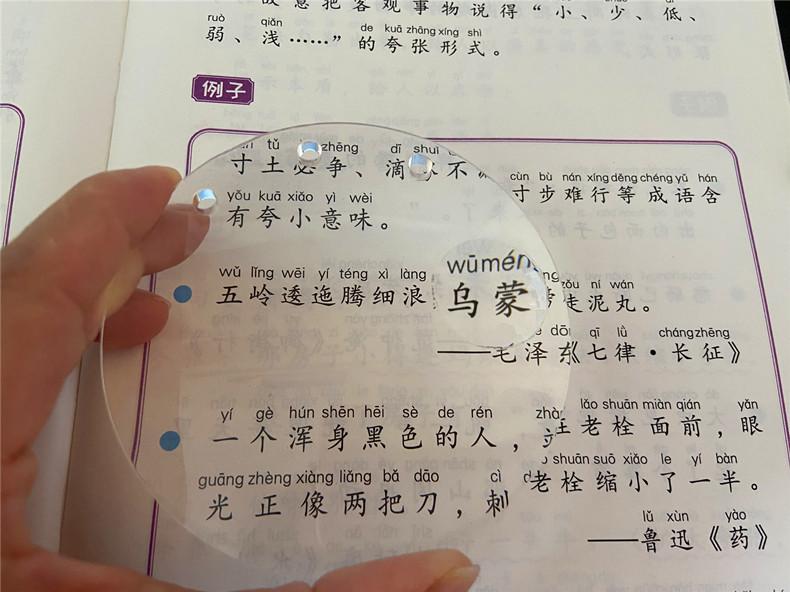 故意把客观事物说得“小、少、低、
ruò qiǎn de kuā zhāng xíng shì
弱、浅……”的夸张形式。
例子
tǔ zhēng dī shuǐ cùn bù nán xíng děng chéng yǔ hán
寸土必争、滴水不 寸步难行等成语含
yǒu kuā xiǎo yì wèi
有夸小意味。
wǔ lǐng wēi yí téng xì làng wū méng zǒu ní wán
五岭逶迤腾细浪 乌蒙 走泥丸。
qī lǜ cháng zhēng
——毛泽东《七律·长征》
yí gè hún shēn hēi sè de rén lǎo shuān miàn qián yǎn
一个浑身黑色的人，站在老栓面前，眼
guāng zhèng xiàng liǎng bǎ dāo cì shuān suō xiǎo le yí bàn
光正像两把刀，刺 老栓缩小了一半。
lǔ xùn yào
——鲁迅《药》